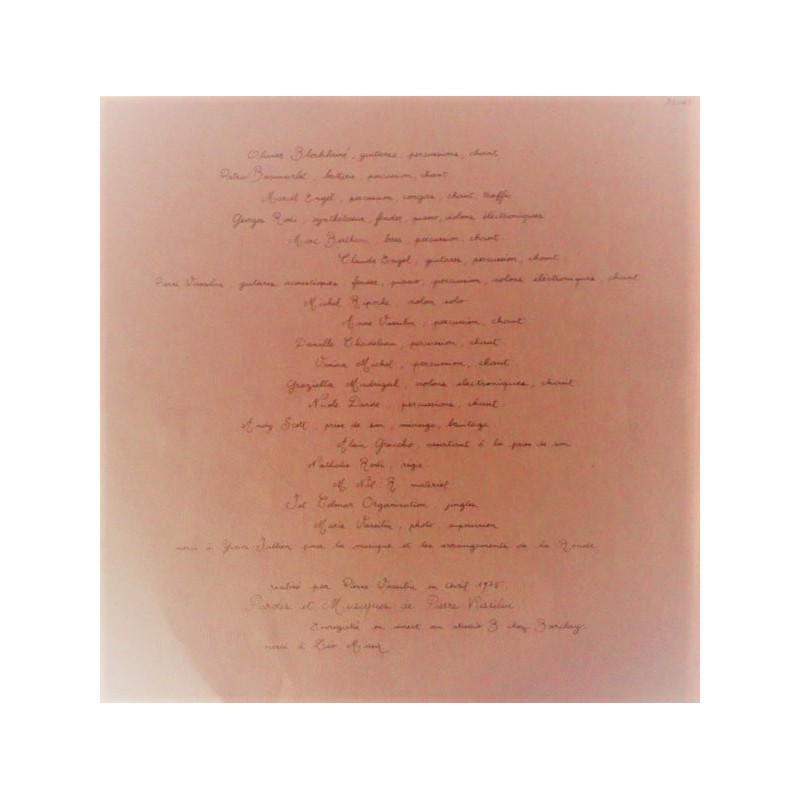 Olivier Bloch-Lainé, guitares, percussions, chant
Beaumarlet, batterie, percussion, chant
Marcel Engel, percussion, congas, chant,
Georges Rodi, synthétiseur, fender, piano, violons électroniques
Marc Bertaux, bass, percussion, chant
Claude Engel, guitares, percussion, chant
Pierre Vassiliu, guitares acoustiques, fender, piano, percussion, violons électroniques, chant
Michel Ripoche, violon solo
Anne Vassiliu, percussion, chant
Danielle Chadeleau, percussion, chant
Michel, percussion, chant
Graziella Madrigal, violons électroniques, chant
Nicole Darde, percussions, chant
Andy Scott, prise de son, mixage, bruitage
Alain Graucho, assistant à la prise de son
Nathalie Rodi, régie
M materiel
Jet Colmar Organisation, jingles
Marie Vassiliu, photo,
merci à Yvan Jullien pour la musique et les arrangements de la Ronde
réalisé par Pierre Vassiliu en avril 1975.
Paroles et Musiques de Pierre Vassiliu
Enregistré en direct au studio B chez Barclay.
merci à Music